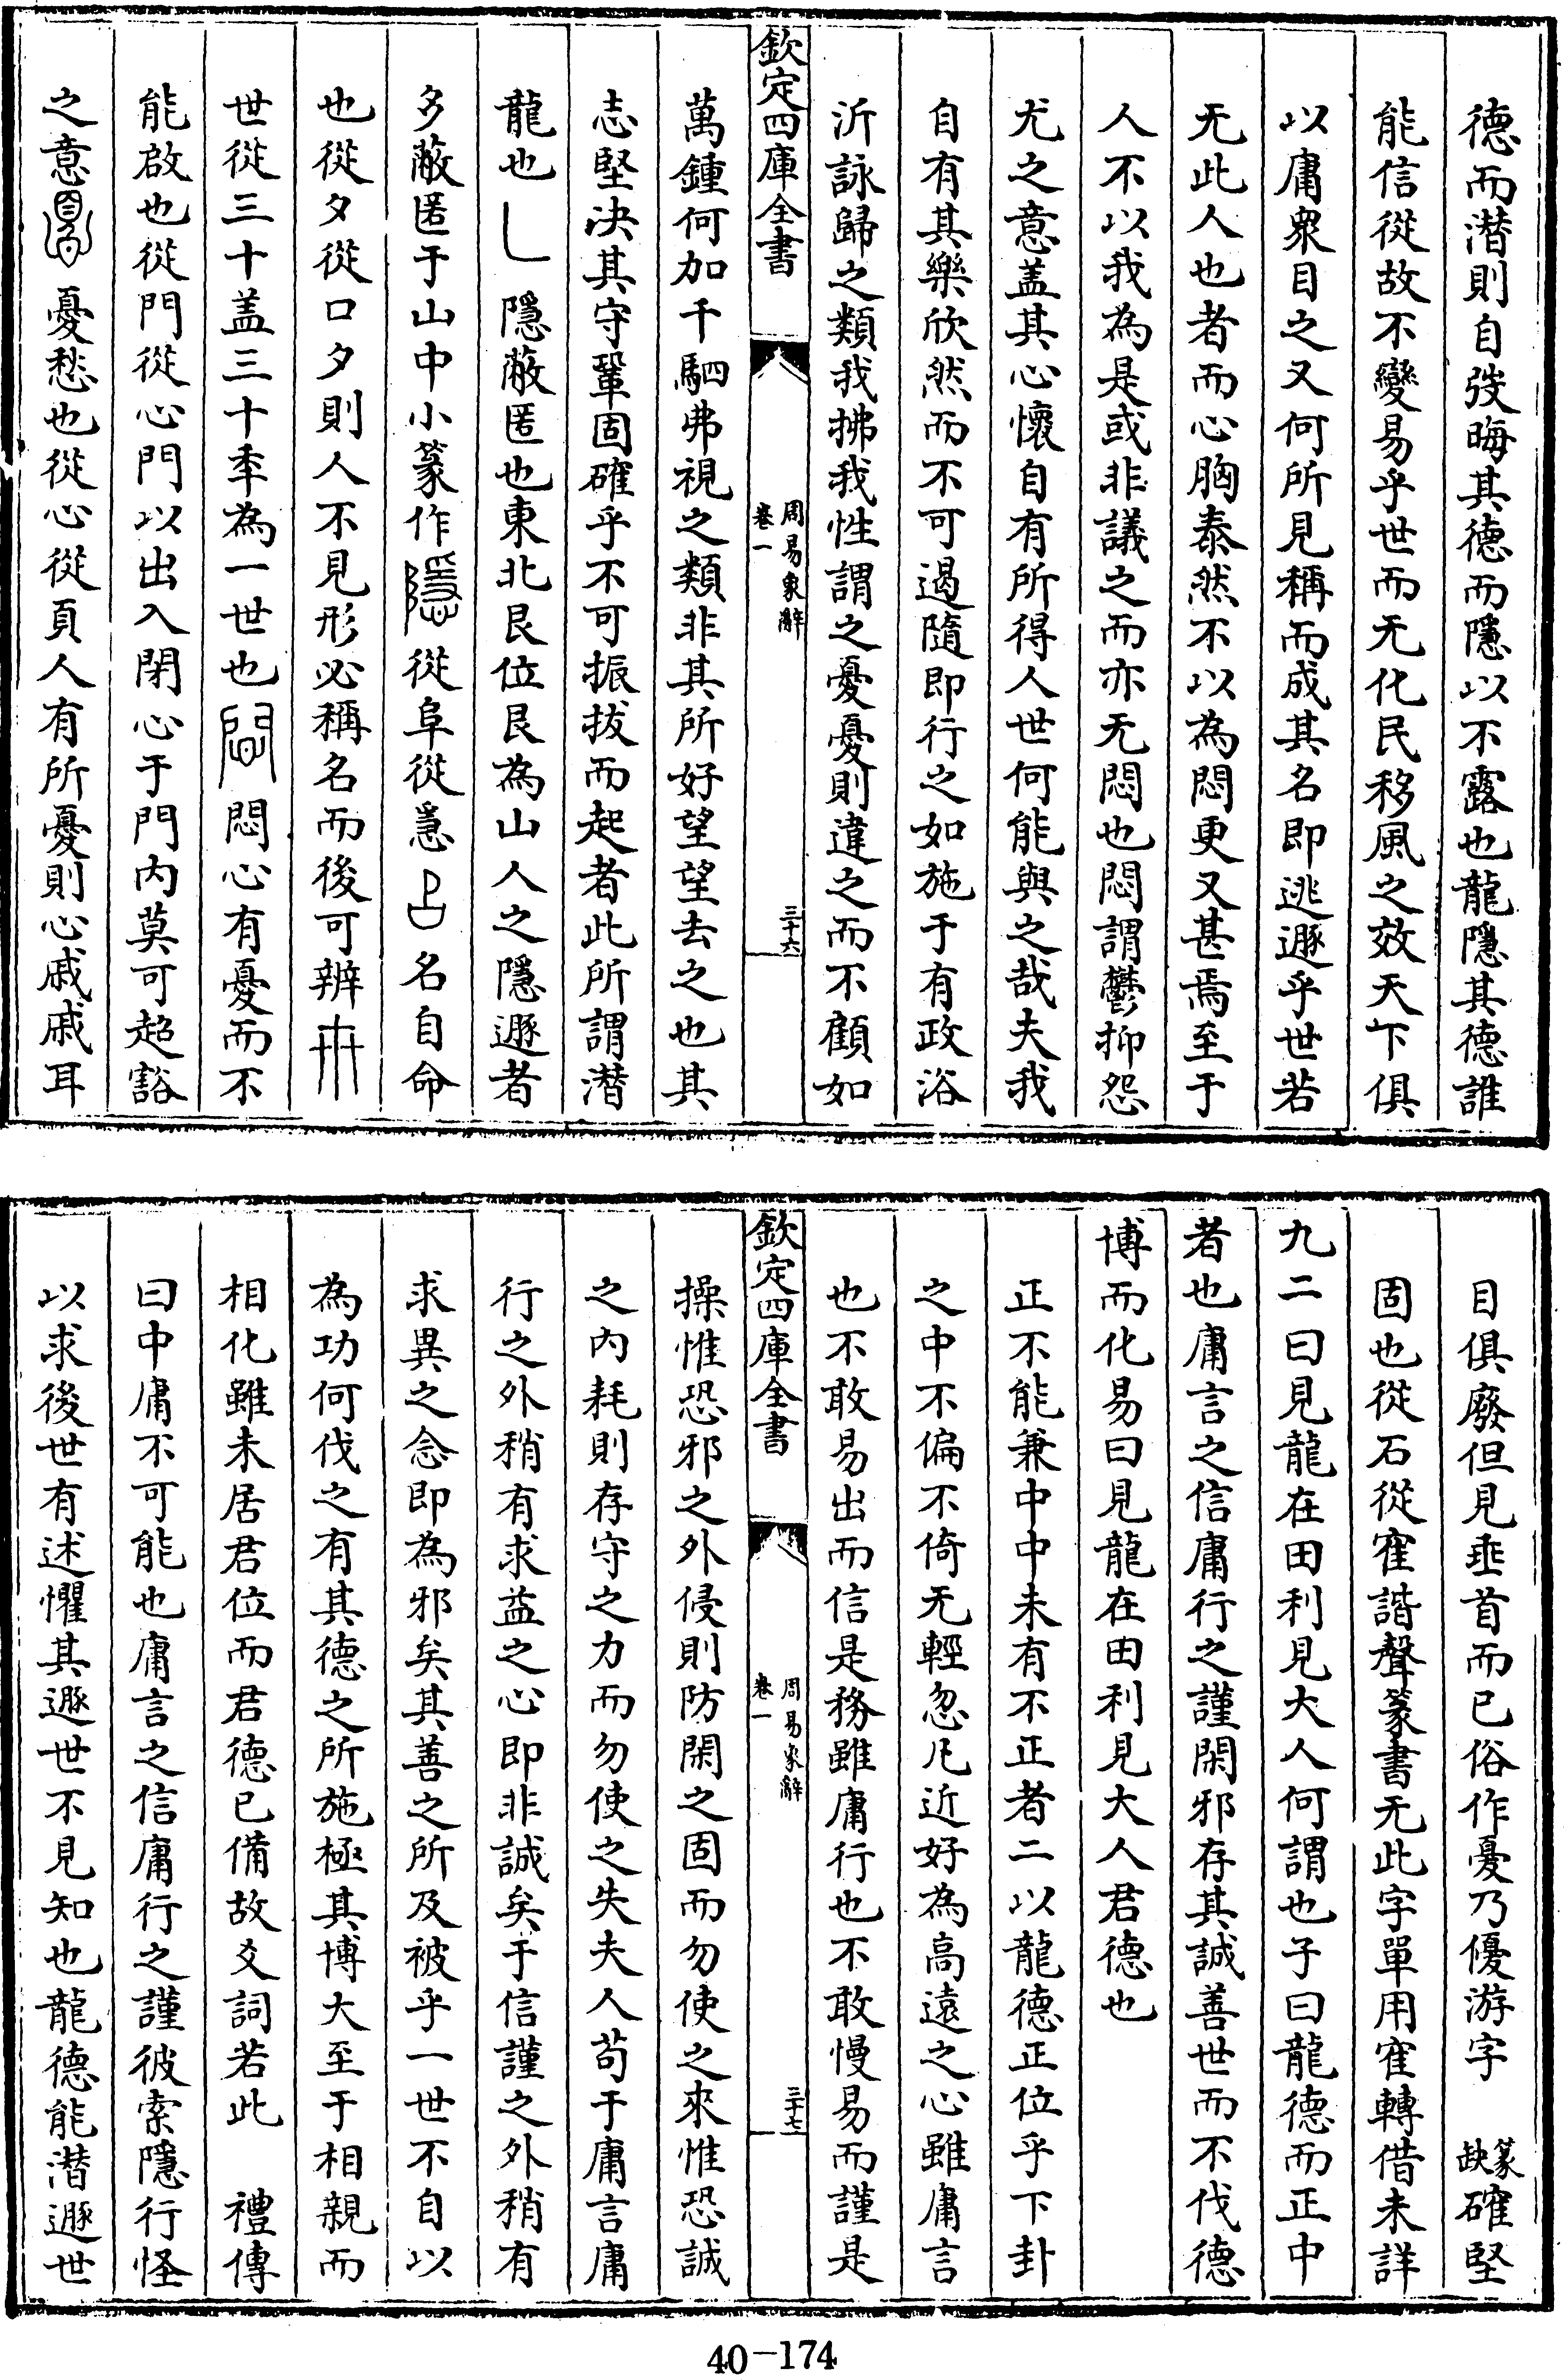 德而潛則自弢晦其德而隱以不露也龍隱其德誰
能信從故不變易乎世而无化民移風之效天下俱
以庸衆目之又何所見稱而成其名即逃遯乎世若
无此人也者而心胸泰然不以為悶更又甚焉至于
人不以我為是或非議之而亦无悶也悶謂鬱抑怨
尤之意盖其心懷自有所得人世何能與之哉夫我
自有其樂欣然而不可遏隨即行之如施于有政浴
沂詠歸之類我拂我性謂之憂憂則違之而不顧如
欽定四庫全書
周易象辭
卷一
三十六
萬鍾何加千駟弗視之類非其所好望望去之也其
志堅決其守鞏固確乎不可振拔而起者此所謂潛
龍也乚隱蔽匿也東北艮位艮為山人之隱遯者
多蔽匿于山中小篆作隱從阜從㥯名自命
也從夕從口夕則人不見形必稱名而後可辨
世從三十盖三十秊為一世也悶心有憂而不
能啟也從門從心門以出入閉心于門內莫可超豁
之意憂愁也從心從頁人有所憂則心戚戚耳
目俱廢但見垂首而已俗作憂乃優游字篆缺確堅
固也從石從隺諧聲篆書无此字單用隺轉借未詳
九二曰見龍在田利見大人何謂也子曰龍德而正中
者也庸言之信庸行之謹閑邪存其誠善世而不伐德
博而化易曰見龍在田利見大人君德也
正不能兼中中未有不正者二以龍德正位乎下卦
之中不偏不倚无輕忽凡近好為高遠之心雖庸言
也不敢易出而信是務雖庸行也不敢慢易而謹是
欽定四庫全書
周易象辭
卷一
三十七
操惟恐邪之外侵則防閑之固而勿使之來惟恐誠
之內耗則存守之力而勿使之失夫人苟于庸言庸
行之外稍有求益之心即非誠矣于信謹之外稍有
求異之念即為邪矣其善之所及被乎一世不自以
為功何伐之有其德之所施極其博大至于相親而
相化雖未居君位而君德已備故爻詞若此　禮傳
曰中庸不可能也庸言之信庸行之謹彼索隱行怪
以求後世有述懼其遯世不見知也龍德能潛遯世
40-174